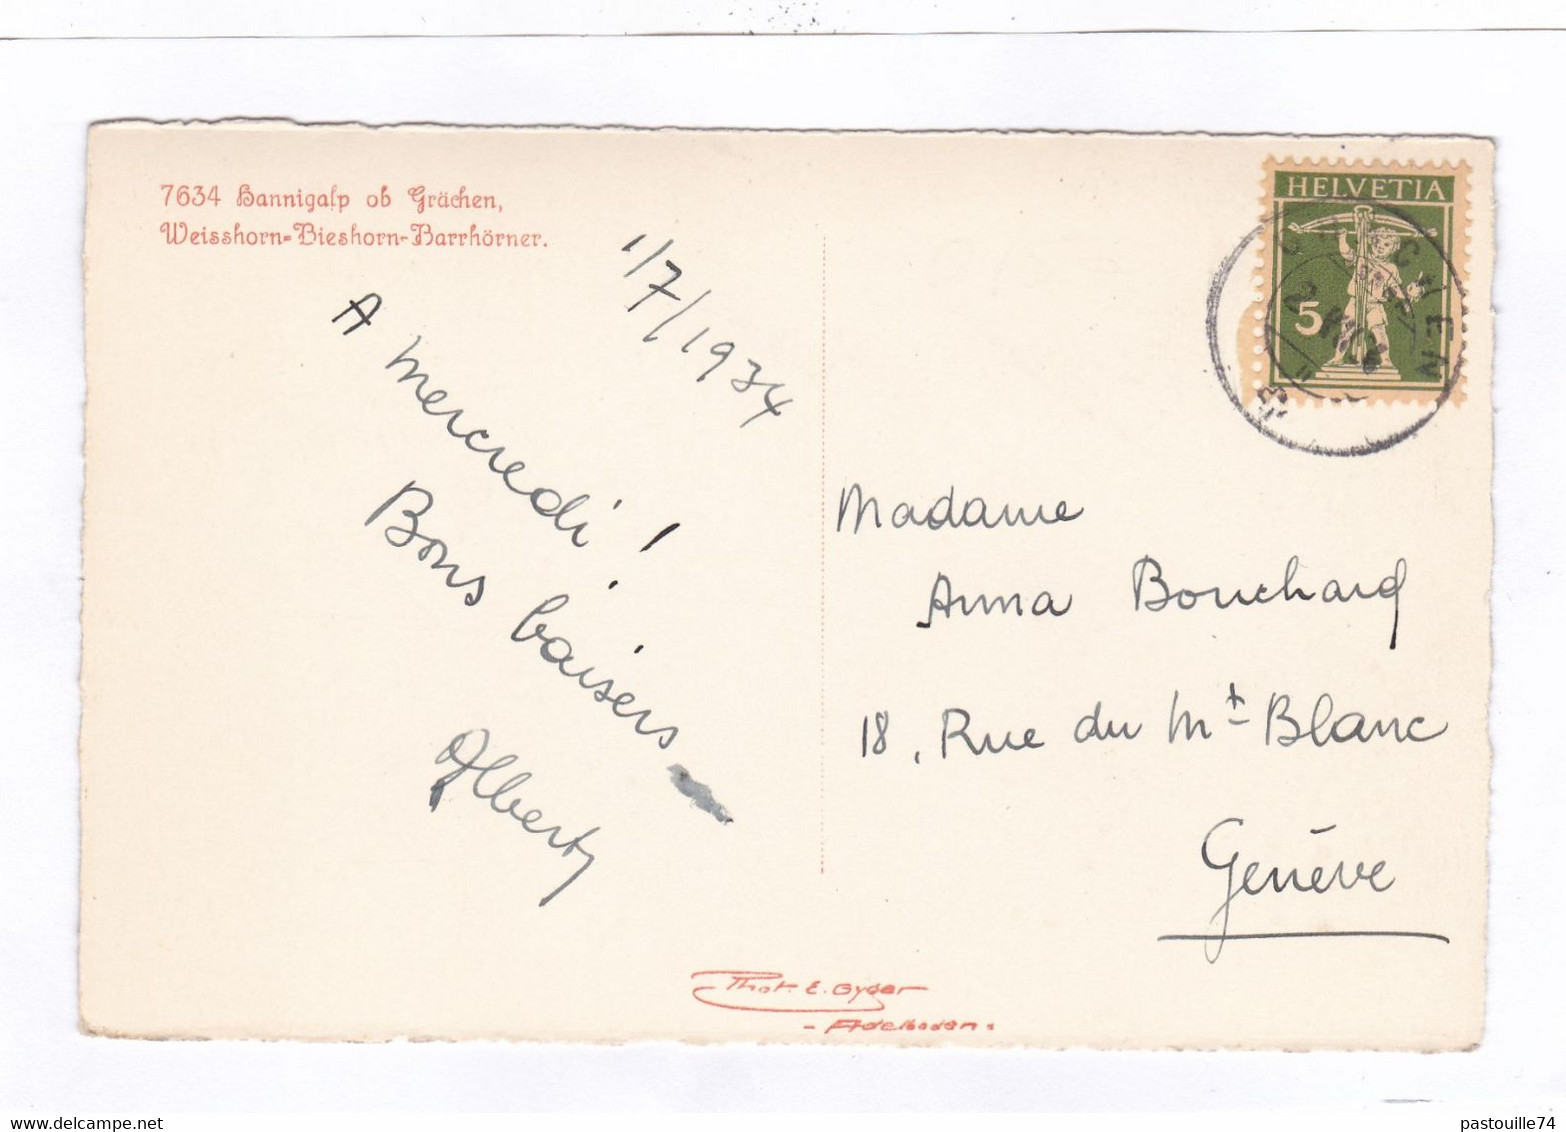 7634 Hannigalp ob Grächen,
Weisshorn-Bieshorn-Barrhörner.
1/7/1934
A mercredi!
Bons baisers
Albert
HELVETIA
5
Madame
Anna Bouchard
18, Rue du Mt Blanc
Genève
Phot. E. Gyger
- Adelboden.
pastouille74